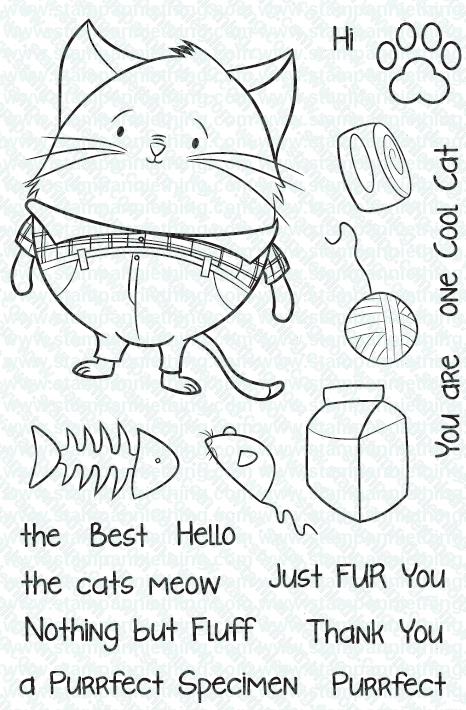 Hi
You are one Cool Cat
the Best Hello
the cats meow
Just FUR You
Nothing but Fluff
Thank You
a Purrfect Specimen
Purrfect